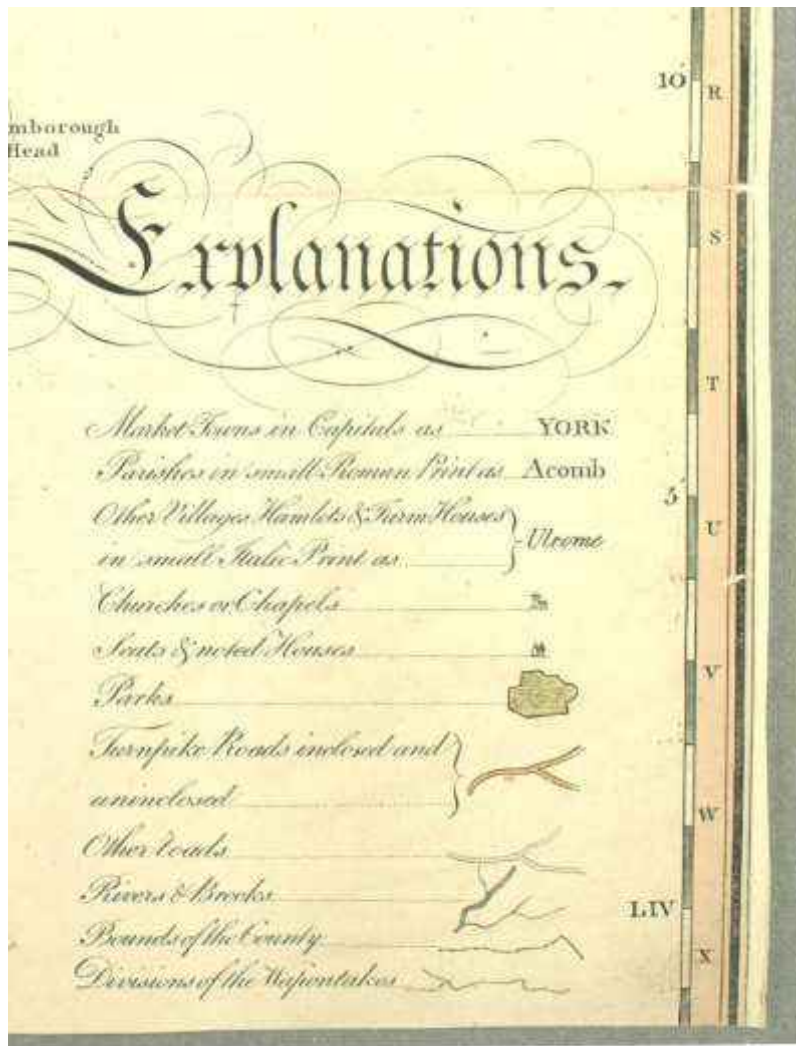 10'
R
mborough
Head
S
Explanations.
T
Market Towns in Capitals as YORK
Parishes in small Roman Print as Acomb
5'
Other Villages Hamlets & Farm Houses
in small Italic Print as Ulrome
U
Churches or Chapels
Seats & noted Houses
V
Parks
Turnpike Roads inclosed and
uninclosed
W
Other roads
Rivers & Brooks
LIV
Bounds of the County
X
Divisions of the Wapontakes